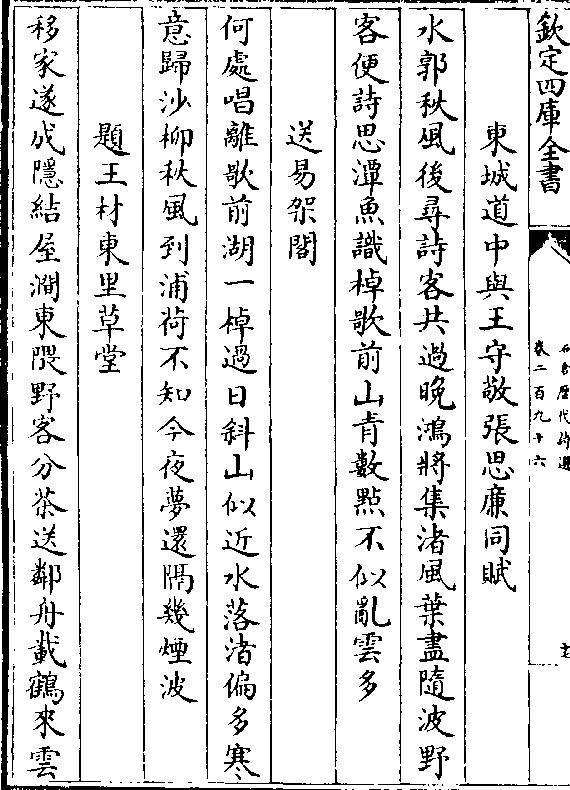 欽定四庫全書
石倉歷代詩選
卷二百九十六
東城道中與王守敬張思廉同賦
水郭秋風後尋詩客共過晚鴻將集渚風葉盡隨波野
客便詩思潭魚識棹歌前山青數點不似亂雲多
送易架閣
何處唱離歌前湖一棹過日斜山似近水落渚偏多寒
意歸沙柳秋風到浦荷不知今夜夢還隔幾煙波
題王材東里草堂
移家遂成隱結屋澗東隈野客分茶送鄰舟載鶴來雲